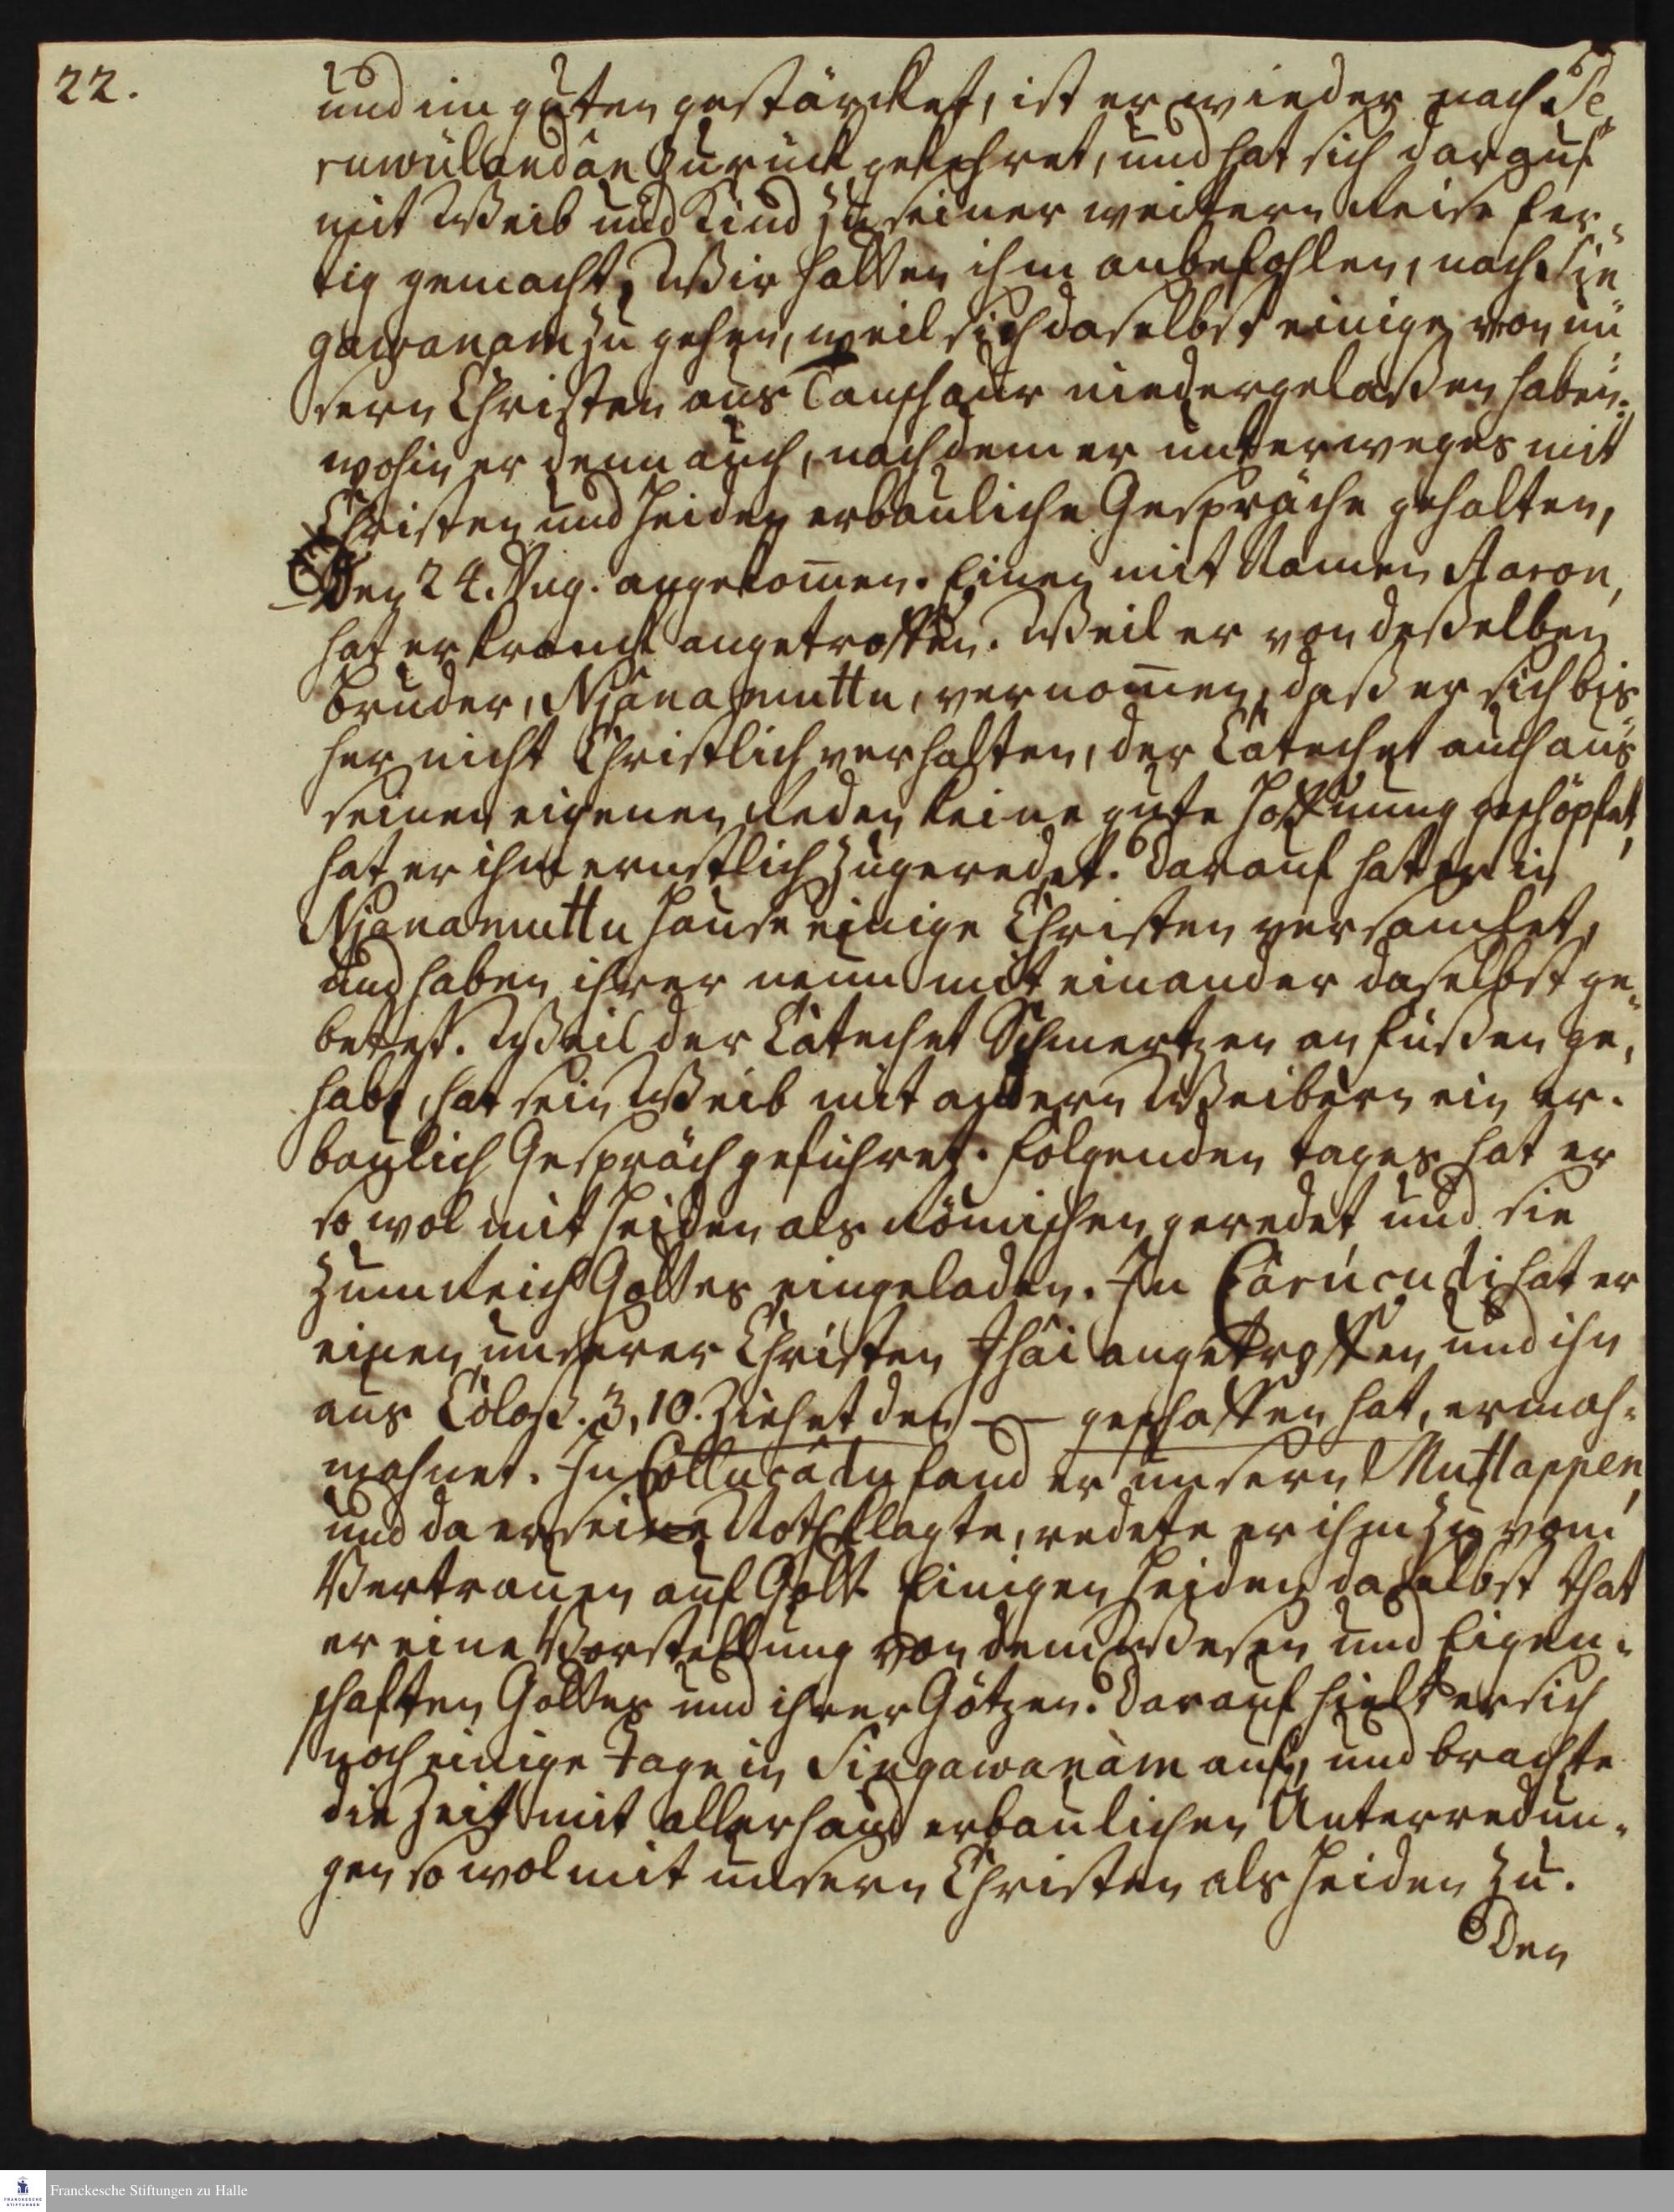 22.
und im guten gestärcket, ist er wieder nach Pe„
ruwülandân zurück gekehret, und hat sich darauf
mit Weib und Kind zu seiner weitern Reise fer„
tig gemacht. Wir hatten ihm anbefohlen, nach Sin
gawanam zu gehen, weil sich daselbst einige von un„
sern Christen aus Tanschaur niedergelaßen haben:
wohin er denn auch, nachdem er unterweges mit
Christen und Heiden erbauliche Gespräche gehalten,
Den 24. Aug. angekom̅en. Einen mit Namen Aaron,
hat er kranck angetroffen. Weil er von deßelben
Bruder, Njânamuttu, vernom̅en, daß er sich bis„
her nicht Christlich verhalten, der Catechet auch aus
seinen eigenen Reden keine gute Hoffnung geschöpfet,
hat er ihm ernstlich zugeredet. Darauf hat er in
Njanamuttu Hause einige Christen versamlet,
und haben ihrer neun mit einander daselbst ge„
betet. Weil der Catechet Schmertzen an Füßen ge„
habt, hat sein Weib mit andern Weibern ein er„
baulich Gespräch geführet. Folgenden tages hat er
so wol mit Heiden als Römischen geredet und sie
zum Reich Gottes eingeladen. In Cârúcudi hat er
einen unserer Christen Ihâi angetroffen und ihn
aus Coloß. 3, 10. Ziehet den — geschaffen hat, ermah„
mahnet. In Collucâdu fand er unsern Muttappen,
und da er seine Noth klagte, redete er ihm zu vom
Vertrauen auf Gott. Einigen Heiden daselbst that
er eine Vorstellung von dem Wesen und Eigen„
schaften Gottes und ihrer Götzen. Darauf hielt er sich
noch einige Tage in Singawanàm auf, und brachte
die Zeit mit allerhand erbaulichen Unterredun„
gen so wol mit unsern Christen als Heiden zu.
Den
Franckesche Stiftungen zu Halle
FRANCKESCHE
STIFTUNGEN